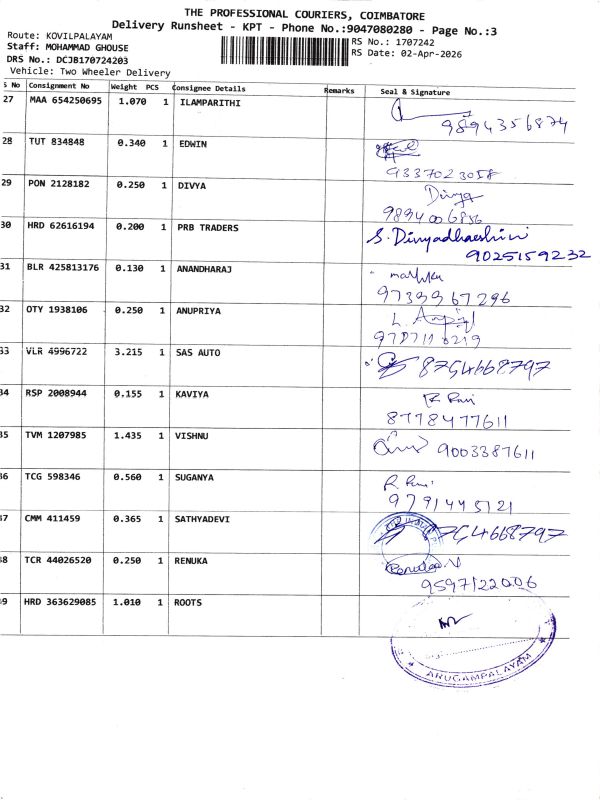 THE PROFESSIONAL COURIERS, COIMBATORE
Delivery Runsheet - KPT - Phone No.:9047080280 - Page No.:3
Route: KOVILPALAYAM
Staff: MOHAMMAD GHOUSE
DRS No.: DCJB170724203
Vehicle: Two Wheeler Delivery
RS No.: 1707242
RS Date: 02-Apr-2026
S No Consignment No Weight PCS Consignee Details Remarks Seal & Signature
27 MAA 654250695 1.070 1 ILAMPARITHI
9894356874
28 TUT 834848 0.340 1 EDWIN
9337023058
29 PON 2128182 0.250 1 DIVYA Divya
9894006856
30 HRD 62616194 0.200 1 PRB TRADERS S. Divyadhaeshini
9025159232
31 BLR 425813176 0.130 1 ANANDHARAJ
9739967296
32 OTY 1938106 0.250 1 ANUPRIYA
33 VLR 4996722 3.215 1 SAS AUTO 8754668797
34 RSP 2008944 0.155 1 KAVIYA R Ravi
8778477611
35 TVM 1207985 1.435 1 VISHNU 9003387611
36 TCG 598346 0.560 1 SUGANYA R. Ravi
9791445121
37 CMM 411459 0.365 1 SATHYADEVI 8754668797
38 TCR 44026520 0.250 1 RENUKA Renuka V
9597122006
39 HRD 363629085 1.010 1 ROOTS
ARUGAMPALAYAM